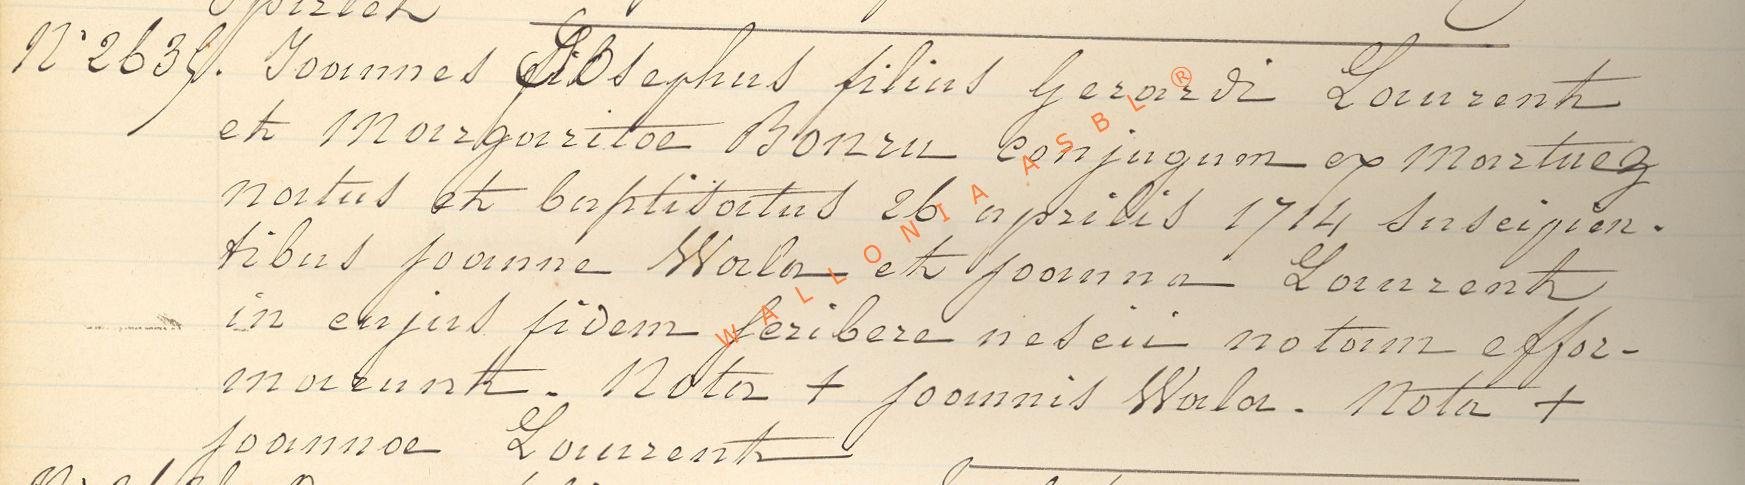 Spirlet
N° 2639. Joannes Josephus filius Gerardi Laurent
et Margaritae Bonru conjugum ex Martuez
natus et baptisatus 26 aprilis 1714 suscipien-
tibus joanne Wala et joanna Laurent
in cujus fidem scribere nescii notam effor-
marunt. Nota + joannis Wala. Nota +
joannae Laurent
WALLONIA ASBL ®